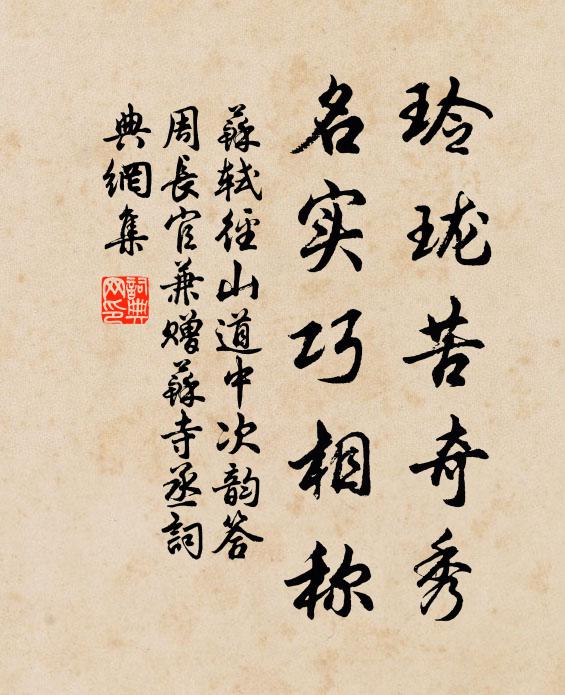 玲珑苦奇秀
名实巧相称
蘇轼徑山道中次韵答
周長官兼赠蘇寺丞詞
典網集
詞典网印